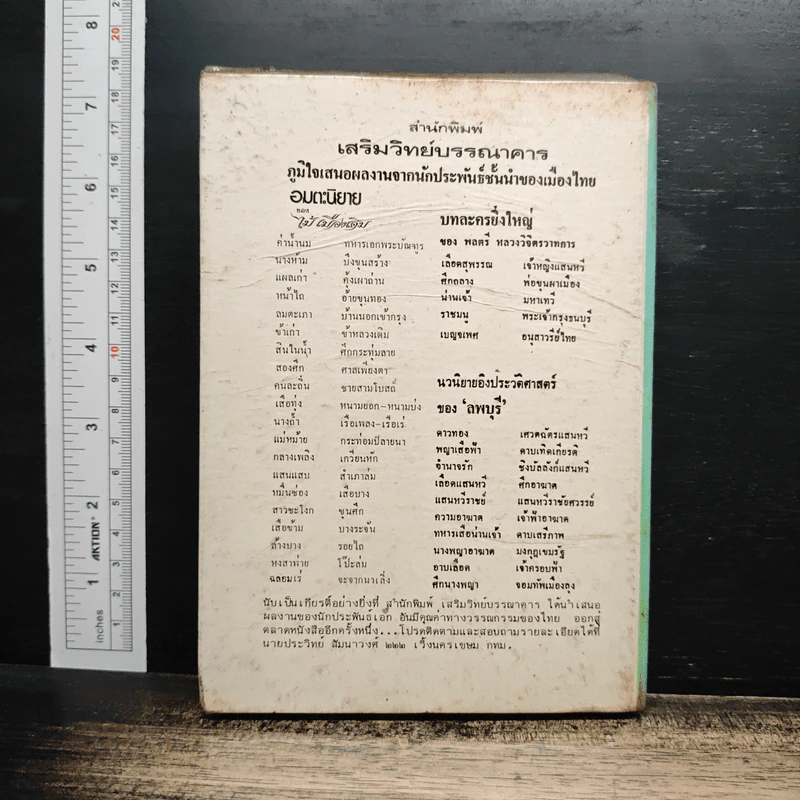 สำนักพิมพ์
เสริมวิทย์บรรณาคาร
ภูมิใจเสนอผลงานจากนักประพันธ์ชั้นนำของเมืองไทย
อมตะนิยาย
ของ
ไม้ เมืองเดิม
ค่าน้ำนม ทหารเอกพระบัณฑูร
นางห้าม บึงขุนสร้าง
แผลเก่า คุ้งเผาถ่าน
หน้าไถ อ้ายขุนทอง
ลมตะเภา บ้านนอกเข้ากรุง
ข้าเก่า ข้าหลวงเดิม
สินในน้ำ ศึกกระทุ่มลาย
สองศึก ศาลเพียงตา
คนละถิ่น ชายสามโบสถ์
เสือทุ่ง หนามยอก-หนามบ่ง
นางถ้ำ เรือเพลง-เรือเร่
แม่หม้าย กระท่อมปลายนา
กลางเพลิง เกวียนหัก
แสนแสบ สำเภาล่ม
หมื่นซ่อง เสือบาง
สาวชะโงก ขุนศึก
เสือข้าม บางระจัน
ล้างบาง รอยไถ
หงสาพ่าย โป๊ะล่ม
ฉลอมเร่
บทละครยิ่งใหญ่
ของ พลตรี หลวงวิจิตรวาทการ
เลือดสุพรรณ เจ้าหญิงแสนหวี
ศึกถลาง พ่อขุนผาเมือง
น่านเจ้า มหาเทวี
ราชมนู พระเจ้ากรุงธนบุรี
เบญจเพศ อนุสาวรีย์ไทย
นวนิยายอิงประวัติศาสตร์
ของ 'ลพบุรี'
ดาวทอง เศวตฉัตรแสนหวี
พญาเสือฟ้า ดาบเทิดเกียรติ
อำนาจรัก ชิงบัลลังก์แสนหวี
เลือดแสนหวี ศึกอาฆาต
แสนหวีราชย์ แสนหวีราชัยศวรรย์
ความอาฆาต เจ้าฟ้าอาฆาต
ทหารเสือน่านเจ้า ดาบเสรีภาพ
นางพญาอาฆาต มงกุฎเขมรัฐ
อาบเลือด เจ้าครอบฟ้า
ศึกนางพญา จอมทัพเมืองลุง
นับเป็นเกียรติ์อย่างยิ่งที่ สำนักพิมพ์ เสริมวิทย์บรรณาคาร ได้นำเสนอ
ผลงานของนักประพันธ์เอก อันมีคุณค่าทางวรรณกรรมของไทย ออกสู่
ตลาดหนังสืออีกครั้งหนึ่ง...โปรดติดตามและสอบถามรายละเอียดได้ที่
นายประวิทย์ สัมนาวงศ์ ๒๒๒ เวิ้งนครเขษม กทม.
8
7
6
5
4
3
2
1
inches
AKTION
20
19
18
17
16
15
14
13
12
11
10
9
8
7
6
5
4
3
2
1